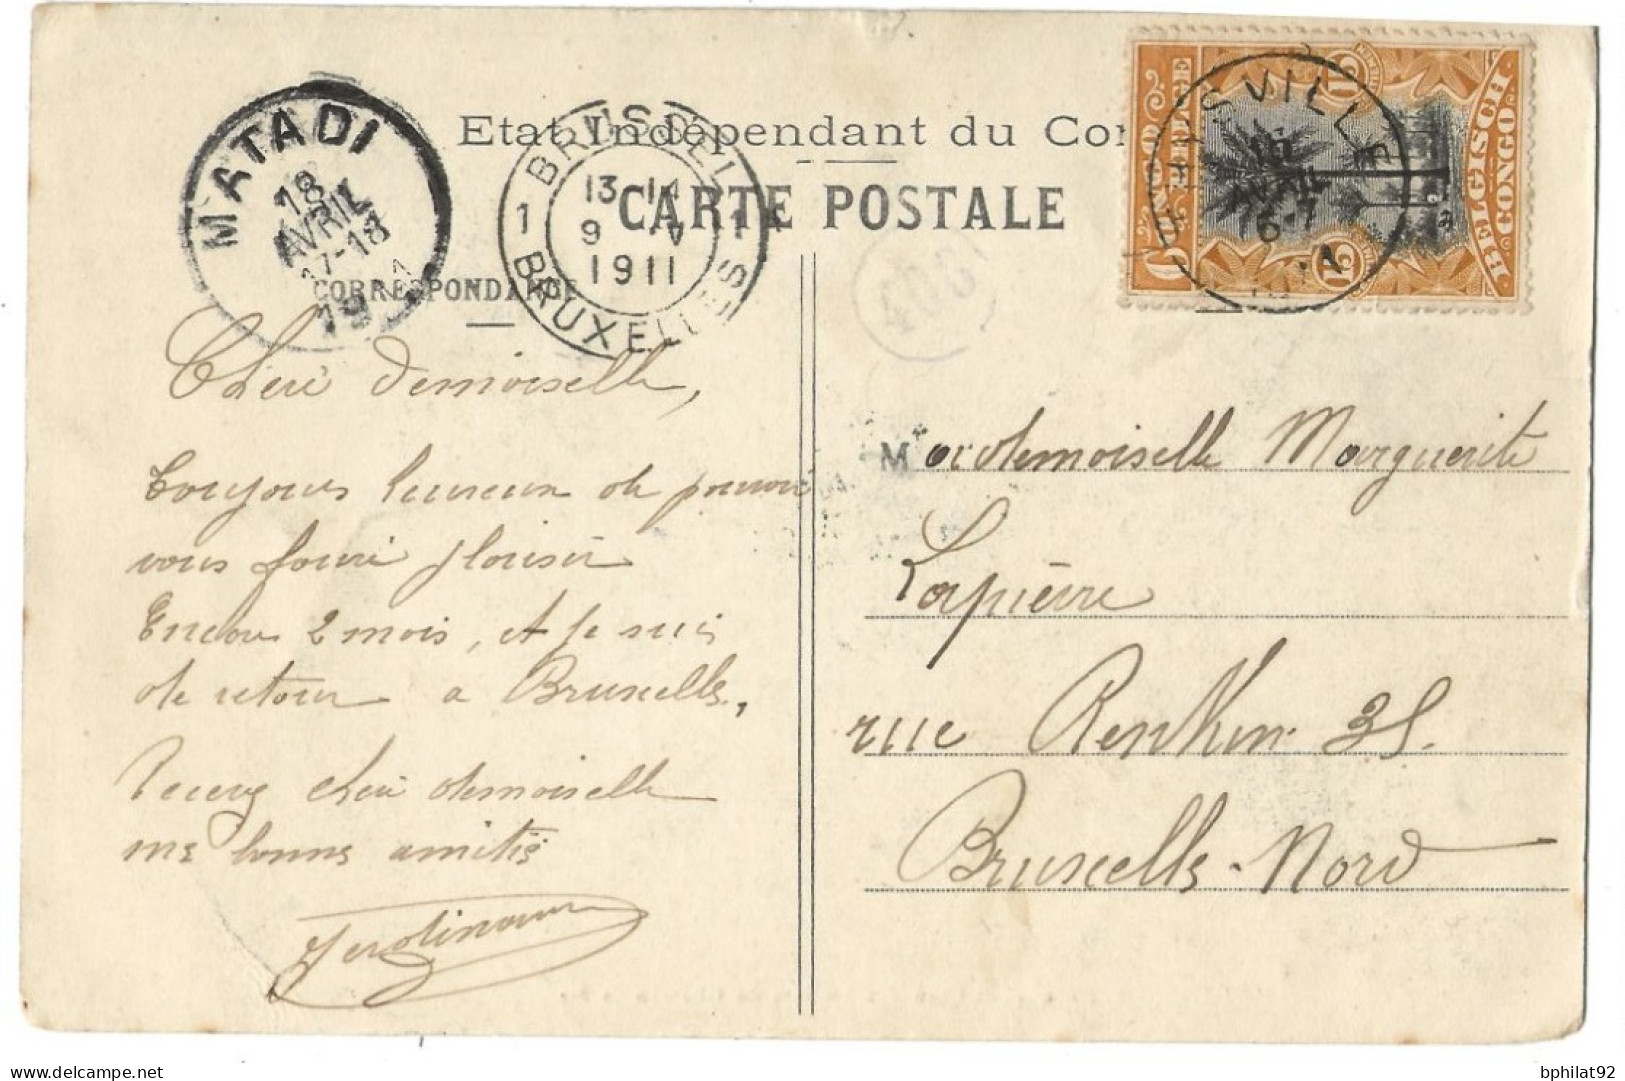 Etat Indépendant du Con
CARTE POSTALE
MATADI
18
AVRIL
17-18
19
BRUSSEL
1 1
13 14
9 V
1911
BRUXELLES
CORRESPONDANCE
VILLE
16
AVRIL
6-7
15 15
CONGO BELGE
BELGISCH CONGO
403
Cheri demoiselle,
Toujours heureux de pouvoir
vous faire plaisir
Encore 2 mois, et je suis
de retour a Bruxelles,
Recevez cheri demoiselle
mes bonnes amitiés
Ferdinand
Mademoiselle Marguerite
Lapierre
rue Renkin 35.
Bruxelles-Nord
bphilat92